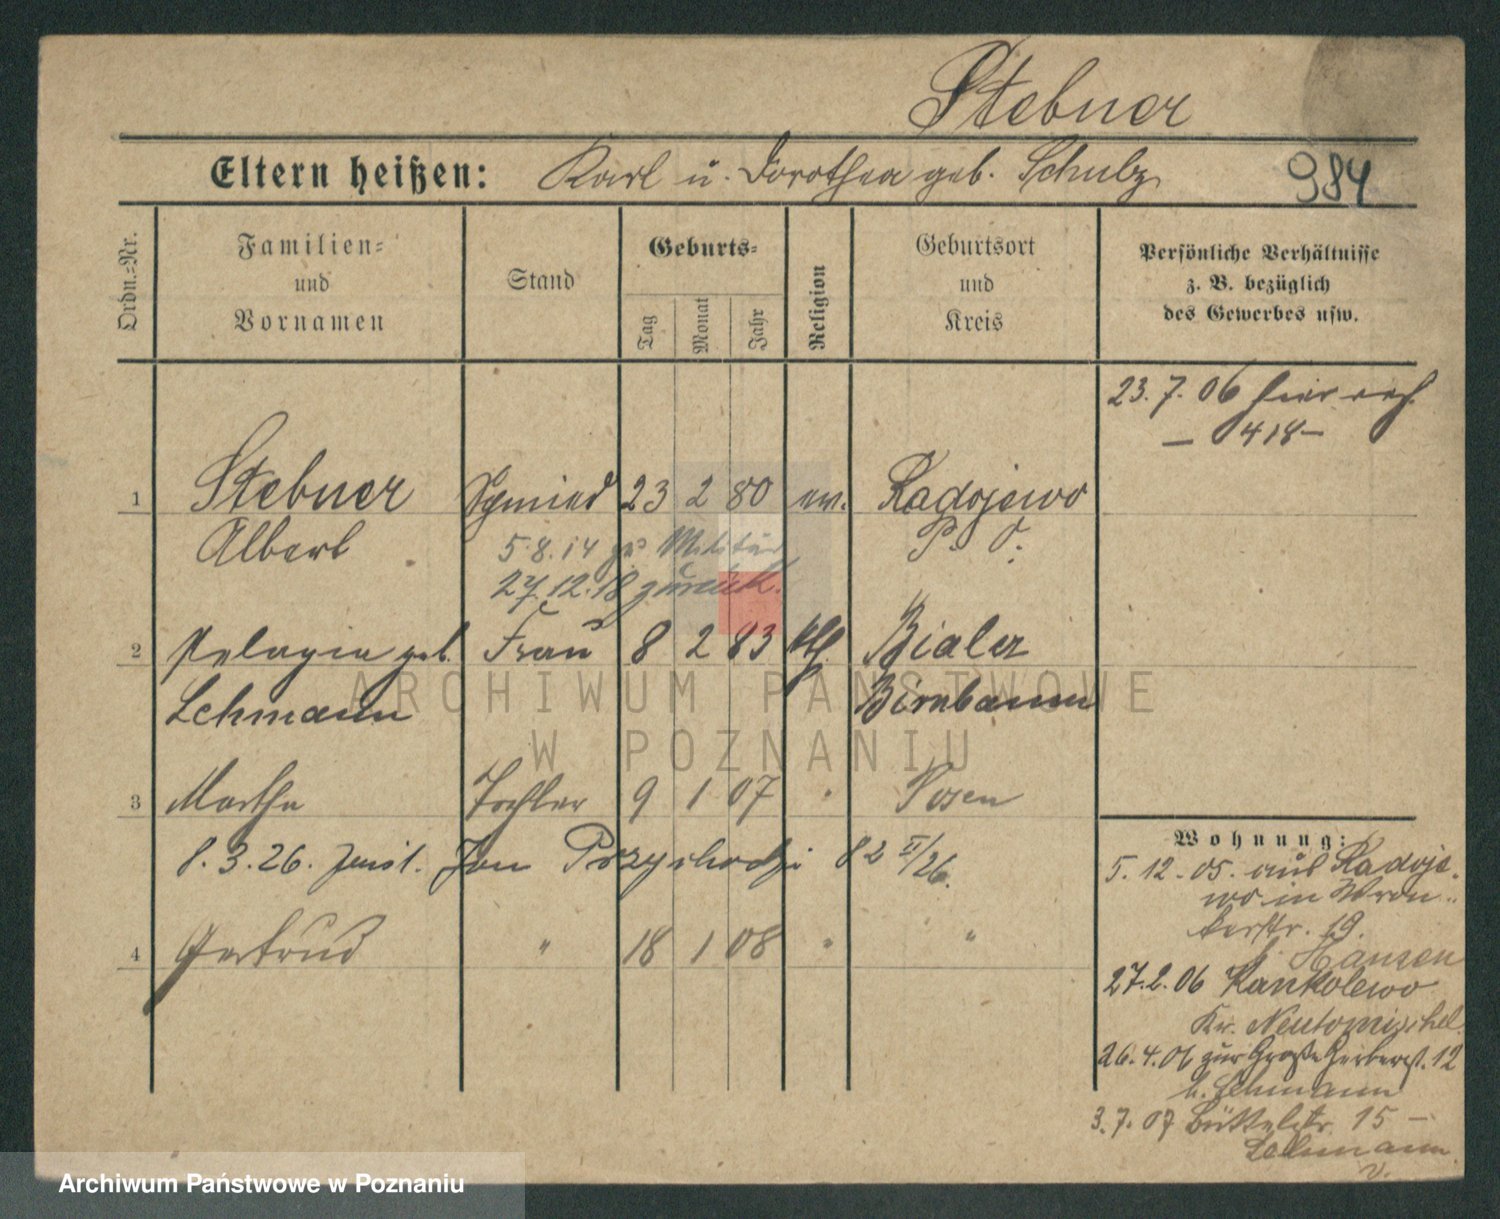 Stebner
Eltern heißen: Karl u. Dorothea geb. Schulz
984
Ordn.=Nr.
Familien=
und
Vornamen
Stand
Geburts=
Tag
Monat
Jahr
Religion
Geburtsort
und
Kreis
Persönliche Verhältnisse
z. B. bezüglich
des Gewerbes usw.
23. 7. 06 hier
– 418 –
1 Stebner Schmied 23 2 80 ev. Radojewo
Albert P. O.
5.8.14 zu Militär
27.12.18 zurück.
2 Pelagia geb. Frau 8 2 83 kth Bialer
Lehmann Birnbaum
3 Martha Tochter 9 1 07 " Posen
8. 3. 26. Jan 82 II/26.
4 Gertrud " 18 1 08 " "
Wohnung:
5. 12. 05. aus Radoje-
wo in Wron-
kerstr. 19.
b. Hansen
27.2.06 Kankolewo
Kr. Neutomischel.
26.4.06 zur Große Gerberst. 12
b. Lehmann
3.7.07 Büttelstr. 15 –
Lehmann
v.
ARCHIWUM PAŃSTWOWE
W POZNANIU
Archiwum Państwowe w Poznaniu